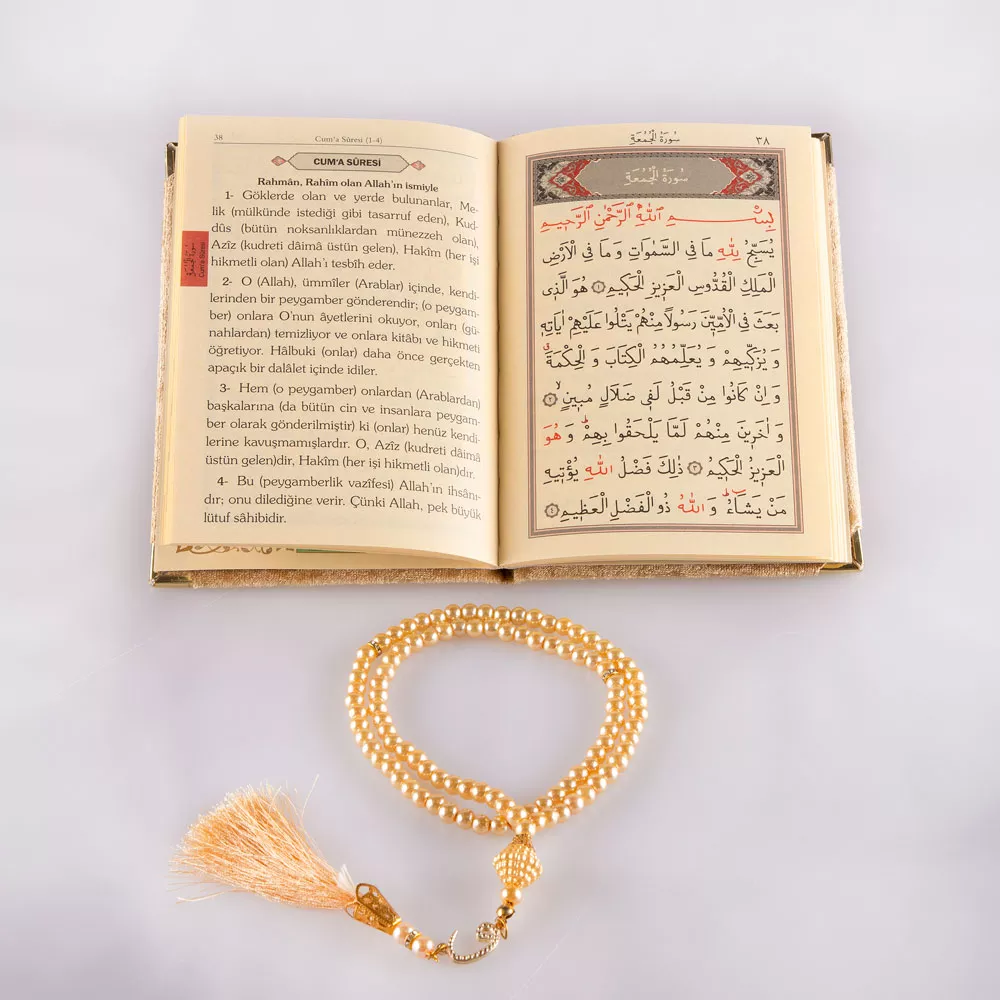 38
Cum'a Sûresi (1-4)
CUM'A SÛRESİ
Rahmân, Rahîm olan Allah'ın ismiyle
1- Göklerde olan ve yerde bulunanlar, Me-
lik (mülkünde istediği gibi tasarruf eden), Kud-
dûs (bütün noksanlıklardan münezzeh olan),
Azîz (kudreti dâimâ üstün gelen), Hakîm (her işi
hikmetli olan) Allah'ı tesbîh eder.
2- O (Allah), ümmîler (Arablar) içinde, kendi-
lerinden bir peygamber gönderendir; (o peygam-
ber) onlara O'nun âyetlerini okuyor, onları (gü-
nahlardan) temizliyor ve onlara kitâbı ve hikmeti
öğretiyor. Hâlbuki (onlar) daha önce gerçekten
apaçık bir dalâlet içinde idiler.
3- Hem (o peygamber) onlardan (Arablardan)
başkalarına (da bütün cin ve insanlara peygam-
ber olarak gönderilmiştir) ki (onlar) henüz kendi-
lerine kavuşmamışlardır. O, Azîz (kudreti dâimâ
üstün gelen)dir, Hakîm (her işi hikmetli olan)dır.
4- Bu (peygamberlik vazîfesi) Allah'ın ihsânı-
dır; onu dilediğine verir. Çünki Allah, pek büyük
lütuf sâhibidir.
سورة جمعة
Cum'a Sûresi
سُورَةُ الْجُمُعَةِ
٣٨
سُورَةُ الْجُمُعَةِ
بِسْمِ اللّٰهِ الرَّحْمٰنِ الرَّحِيمِ
يُسَبِّحُ لِلّٰهِ مَا فِي السَّمٰوَاتِ وَ مَا فِي الْاَرْضِ
الْمَلِكِ الْقُدُّوسِ الْعَزِيزِ الْحَكِيمِ ١ هُوَ الَّذِي
بَعَثَ فِي الْاُمِّيّٖنَ رَسُولًا مِنْهُمْ يَتْلُوا عَلَيْهِمْ اٰيَاتِهٖ
وَ يُزَكّٖيهِمْ وَ يُعَلِّمُهُمُ الْكِتَابَ وَ الْحِكْمَةَ
وَ اِنْ كَانُوا مِنْ قَبْلُ لَفٖي ضَلَالٍ مُبٖينٍ ٢
وَ اٰخَرٖينَ مِنْهُمْ لَمَّا يَلْحَقُوا بِهِمْ وَ هُوَ
الْعَزٖيزُ الْحَكٖيمُ ٣ ذٰلِكَ فَضْلُ اللّٰهِ يُؤْتٖيهِ
مَنْ يَشَاءُ وَ اللّٰهُ ذُو الْفَضْلِ الْعَظٖيمِ ٤